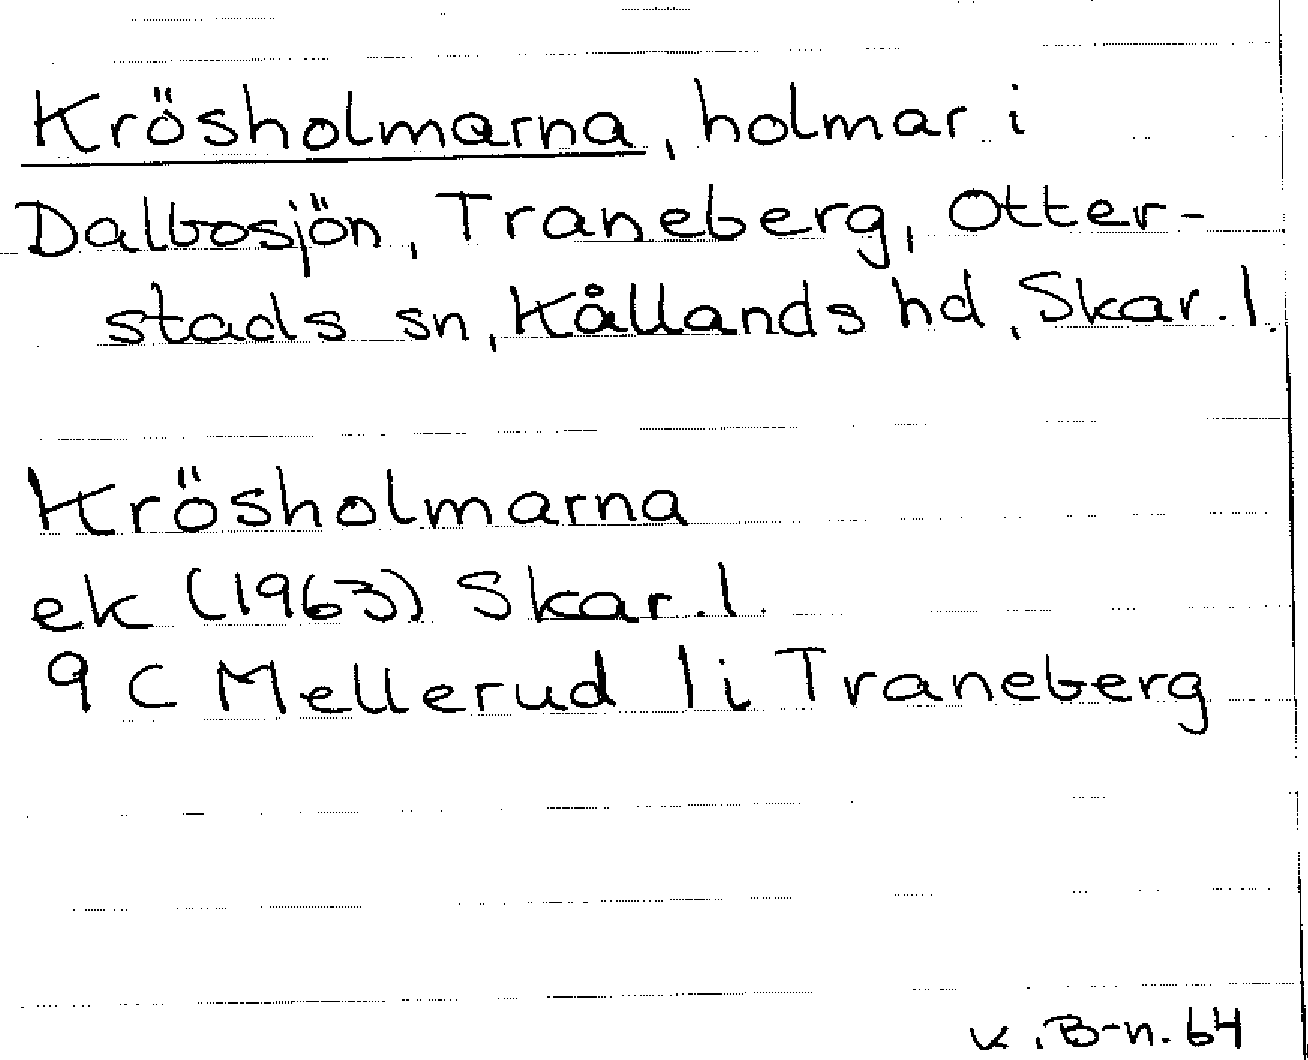 Krösholmarna, holmar i
Dalbosjön, Traneberg, Otter-
stads sn, Kållands hd, Skar. l.
Krösholmarna
ek (1963) Skar. l.
9 C Mellerud 1 i Traneberg
K. B-n. 64